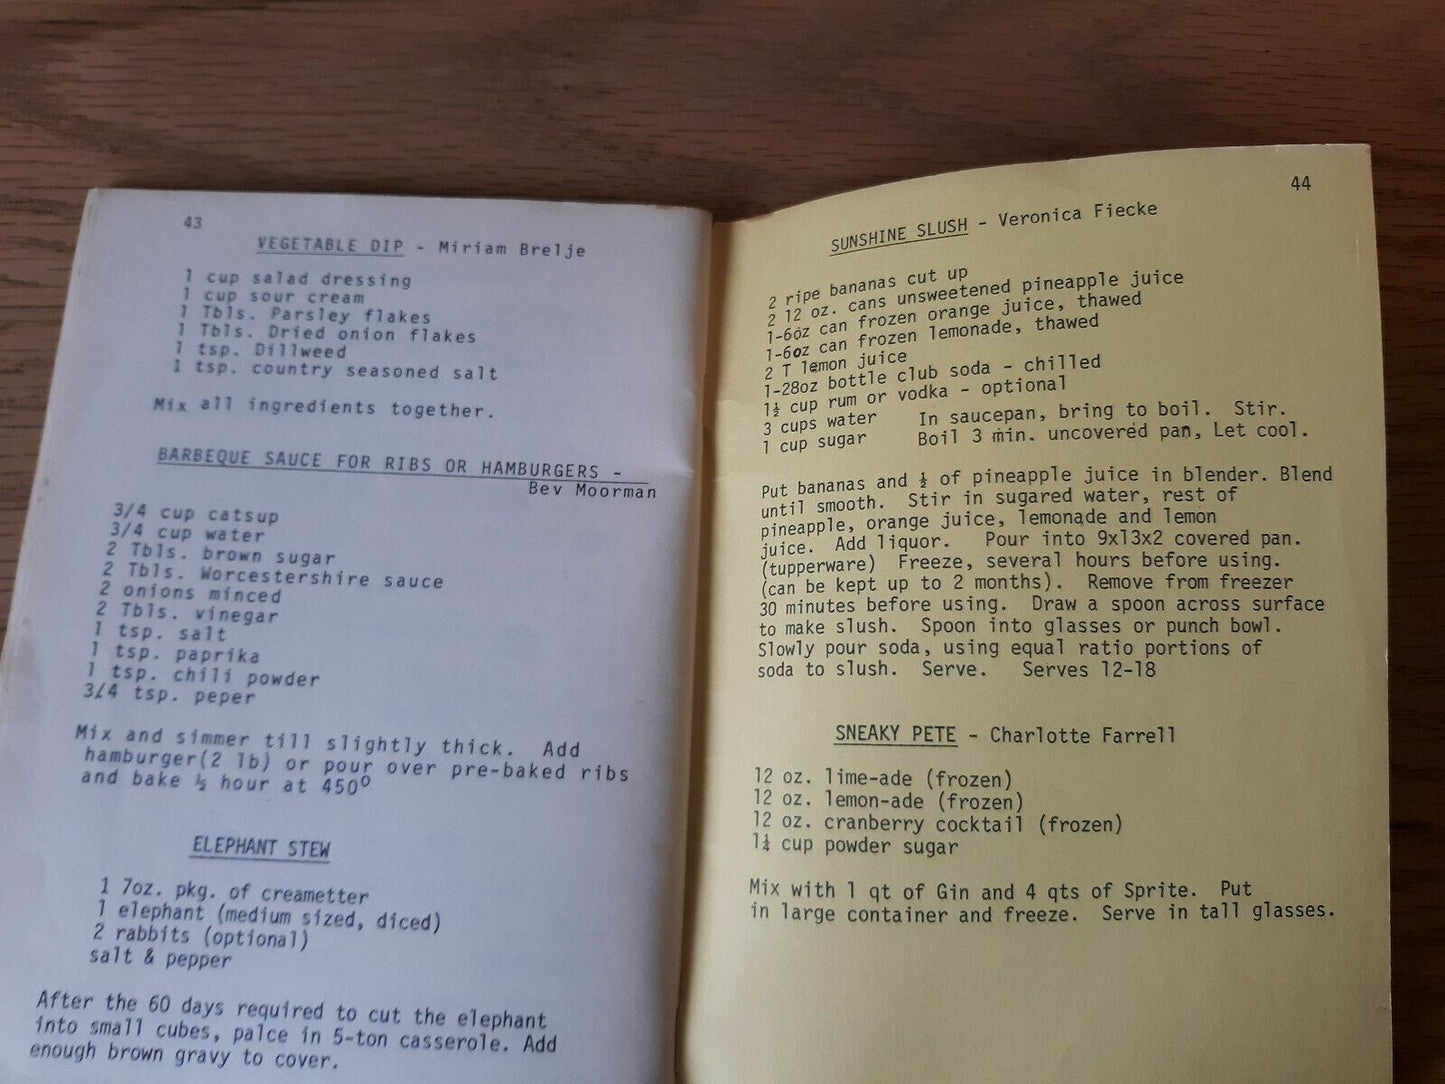 43
VEGETABLE DIP - Miriam Brelje
1 cup salad dressing
1 cup sour cream
1 Tbls. Parsley flakes
1 Tbls. Dried onion flakes
1 tsp. Dillweed
1 tsp. country seasoned salt
Mix all ingredients together.
BARBEQUE SAUCE FOR RIBS OR HAMBURGERS -
Bev Moorman
3/4 cup catsup
3/4 cup water
2 Tbls. brown sugar
2 Tbls. Worcestershire sauce
2 onions minced
2 Tbls. vinegar
1 tsp. salt
1 tsp. paprika
1 tsp. chili powder
3/4 tsp. peper
Mix and simmer till slightly thick. Add
hamburger(2 lb) or pour over pre-baked ribs
and bake ½ hour at 450°
ELEPHANT STEW
1 7oz. pkg. of creametter
1 elephant (medium sized, diced)
2 rabbits (optional)
salt & pepper
After the 60 days required to cut the elephant
into small cubes, palce in 5-ton casserole. Add
enough brown gravy to cover.
44
SUNSHINE SLUSH - Veronica Fiecke
2 ripe bananas cut up
2 12 oz. cans unsweetened pineapple juice
1-6oz can frozen orange juice, thawed
1-6oz can frozen lemonade, thawed
2 T lemon juice
1-28oz bottle club soda - chilled
1½ cup rum or vodka - optional
3 cups water In saucepan, bring to boil. Stir.
1 cup sugar Boil 3 min. uncovered pan, Let cool.
Put bananas and ½ of pineapple juice in blender. Blend
until smooth. Stir in sugared water, rest of
pineapple, orange juice, lemonade and lemon
juice. Add liquor. Pour into 9x13x2 covered pan.
(tupperware) Freeze, several hours before using.
(can be kept up to 2 months). Remove from freezer
30 minutes before using. Draw a spoon across surface
to make slush. Spoon into glasses or punch bowl.
Slowly pour soda, using equal ratio portions of
soda to slush. Serve. Serves 12-18
SNEAKY PETE - Charlotte Farrell
12 oz. lime-ade (frozen)
12 oz. lemon-ade (frozen)
12 oz. cranberry cocktail (frozen)
1¼ cup powder sugar
Mix with 1 qt of Gin and 4 qts of Sprite. Put
in large container and freeze. Serve in tall glasses.